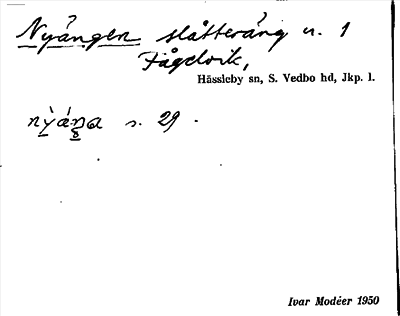 Nyängen slåtteräng u. 1
Fågelvik,
Hässleby sn, S. Vedbo hd, Jkp. l.
s. 29.
Ivar Modéer 1950